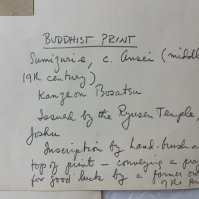 BUDDHIST PRINT
Sumizuri-e, c. Ansei (middle
19th century)
Kangeon Bosatsu
Issued by the Ryusen Temple,
Joshu
Inscription by hand-brush a
top of print — conveying a pra
for good luck by a former ow
of the pri